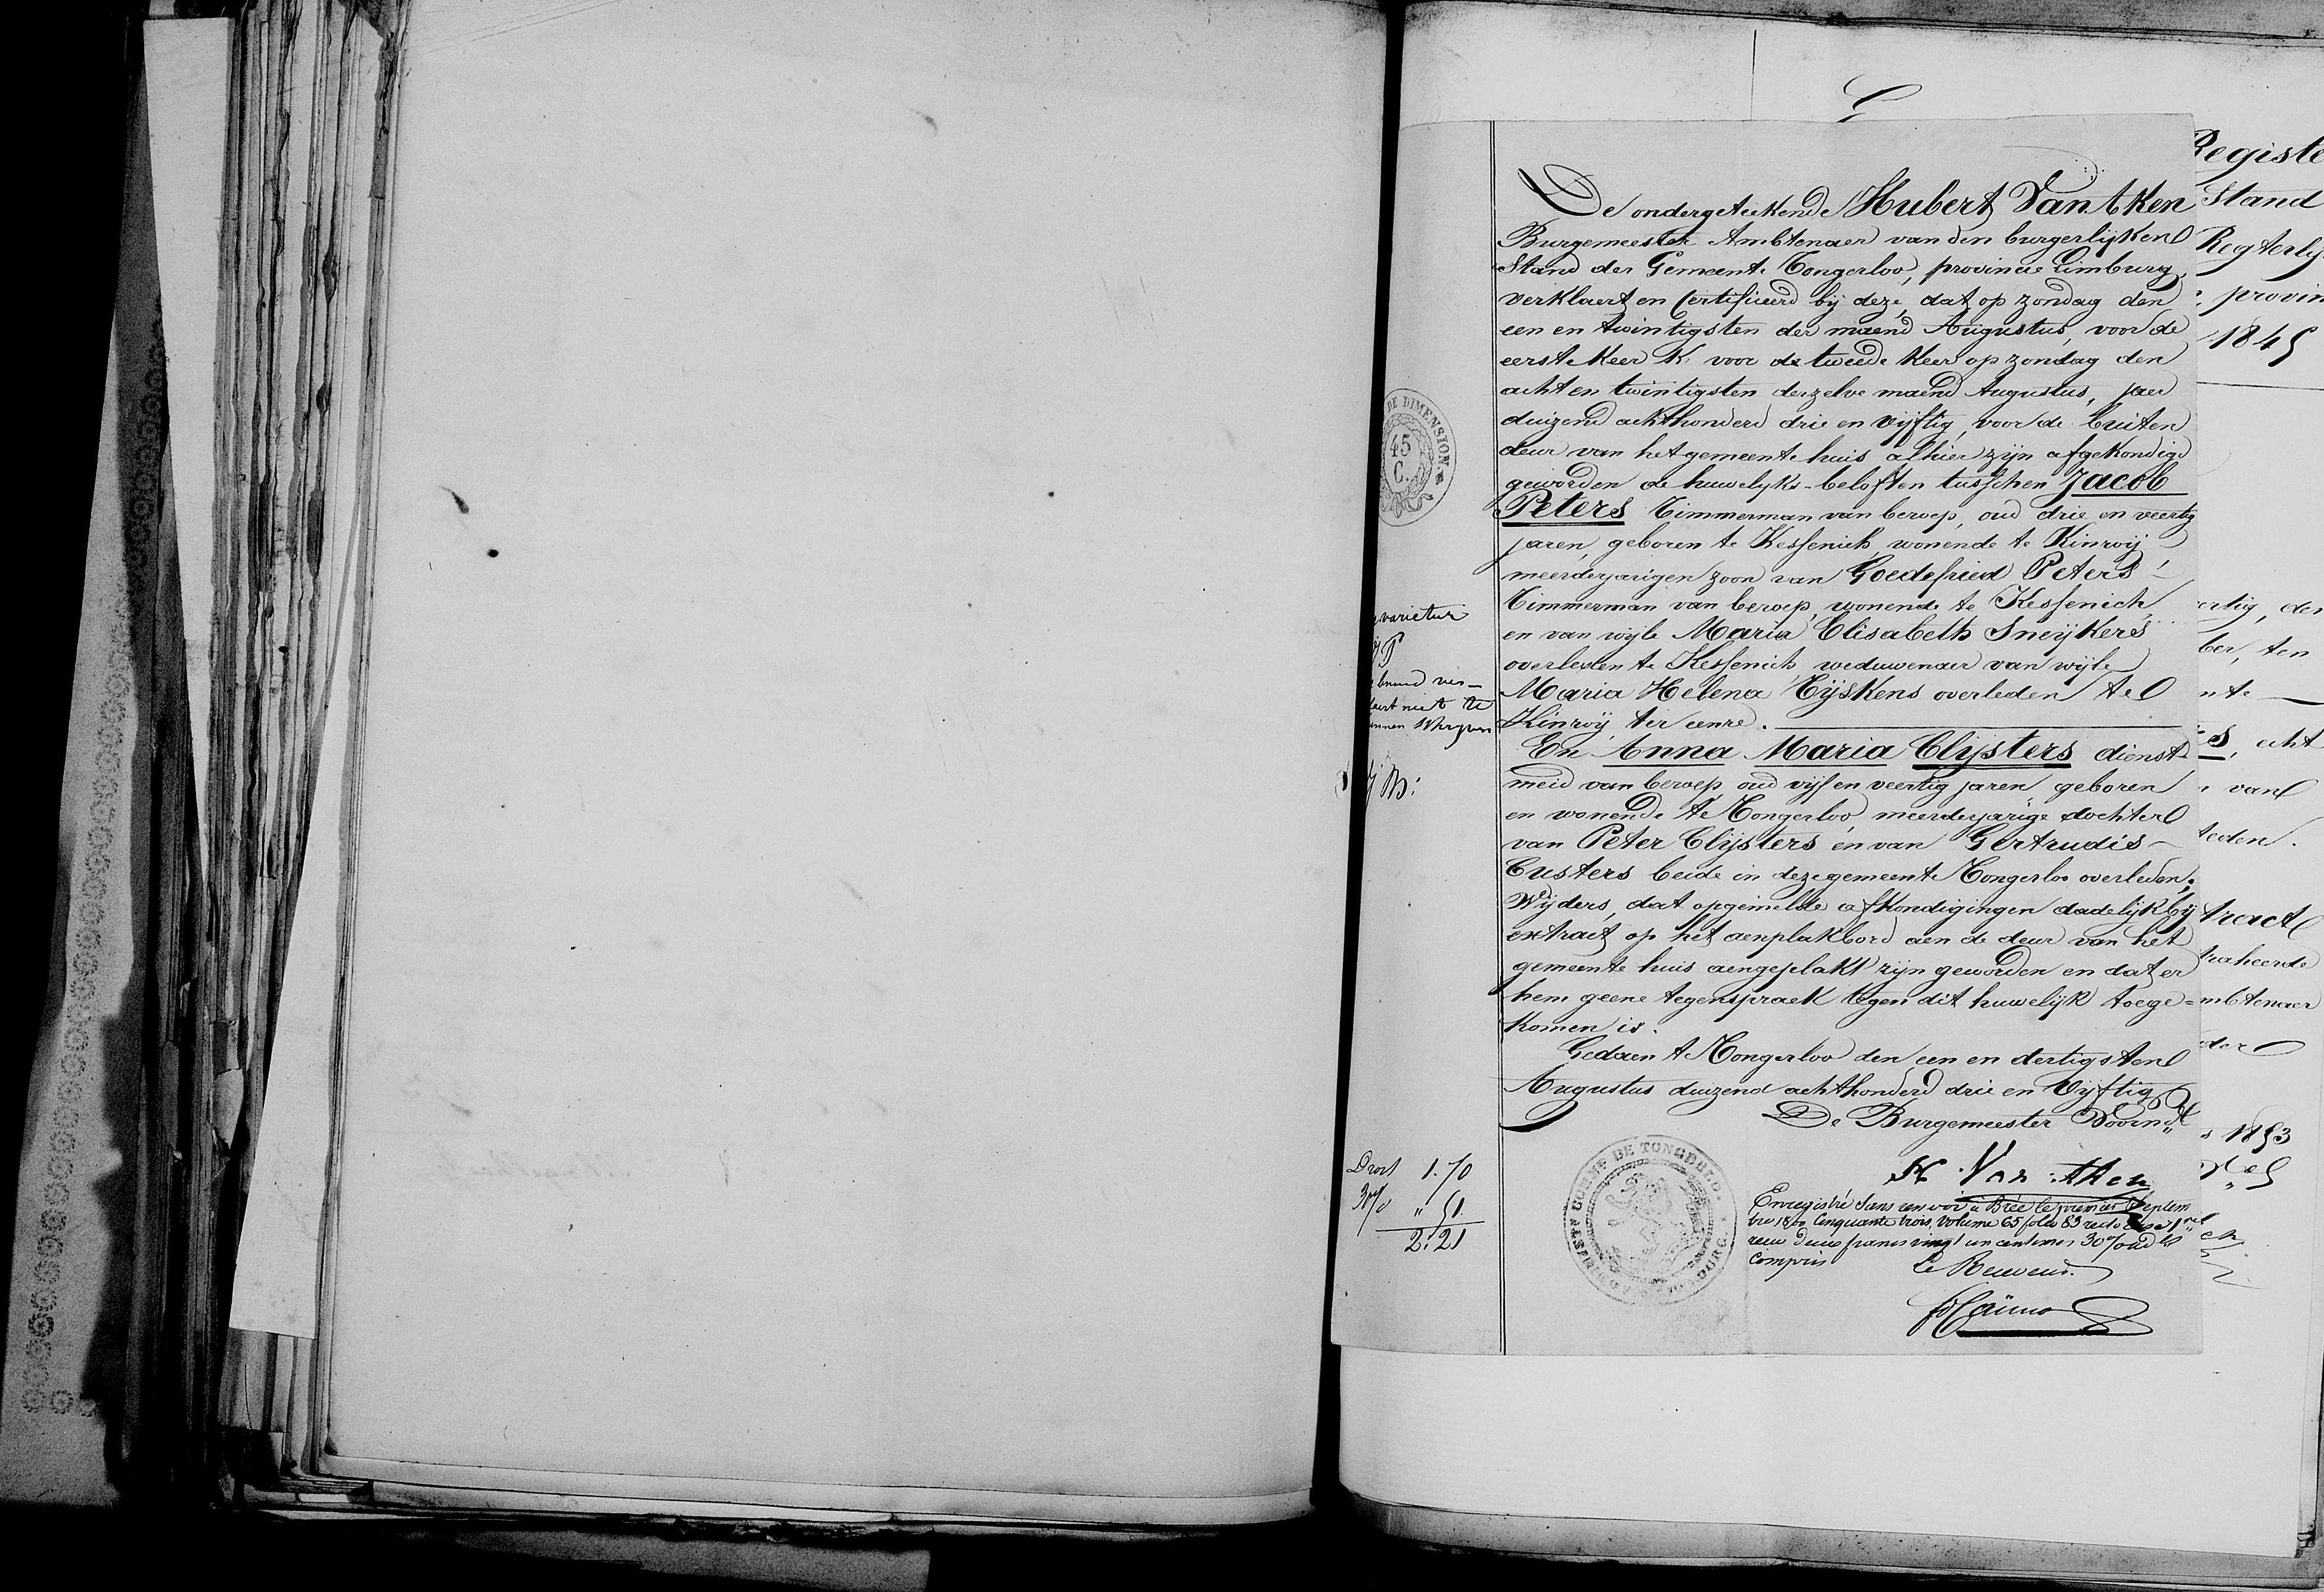 De ondergeteekende Hubert Vanthen
Burgemeester Ambtenaer van den burgerlijken
Stand der Gemeente Tongerloo, provincie Limburg,
verklaert en Certificeerd bij deze, dat op zondag den
een en twintigsten der maend Augustus, voor de
eerste keer & voor de tweede keer op zondag den
acht en twintigsten derzelve maend Augustus, jaer
duizend achthonderd drie en vijftig, voor de buiten
deur van het gemeente huis alhier zijn afgekondigd
geworden de huwelyks-beloften tusschen Jacob
Peters Timmerman van beroep, oud drie en veertig
jaren, geboren te Kessenich, wonende te Kinroij
meerderjarigen zoon van Goedefried Peters
Timmerman van beroep, wonende te Kessenich,
en van wijle Maria Elisabeth Sneijkers
overleden te Kessenich weduwenaer van wijle
Maria Helena Tijskens overleden te
Kinroij, ter eenre.
En Anna Maria Clijsters dienst-
meid van beroep, oud vijf en veertig jaren geboren
en wonende te Tongerloo, meerderjarige dochter
van Peter Clijsters en van Gertrudis
Custers beide in deze gemeente Tongerloo overleden;
Wijders, dat opgemelde afkondigingen dadelijk bij
extract op het aenplakbord aen de deur van het
gemeente huis aengeplakt zijn geworden en dat er
hem geene tegenspraek tegen dit huwelijk toege=
komen is.
Gedaen te Tongerloo den een en dertigsten
Augustus duizend achthonderd drie en vyftig
De Burgemeester Voornd
H Van then
Enregistré sans renvoi à Brée le premier Septem
bre 1800 Cinquante trois, volume 65 folio 83 recto case 1re
recu deux francs vingt un centimes 30% add.ls
Compris
Le Receveur.
DE DIMENSION.
45
C.
varietur
bruid ver-
laert niet te
unnen Schryven
Droit 1.70
30% " 51
2.21
COMMe DE TONGERLO
Registe
Stand
Regterly
provin
1845
ertig, der
ber, ten
nte
es, echt
van
leden.
tract
traheerde
mbtenaer
der
1853